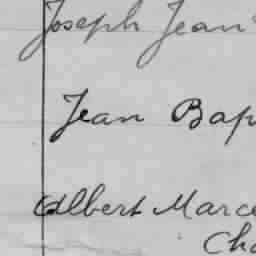 Joseph Jean
Jean Bap
Albert Marce
Cha